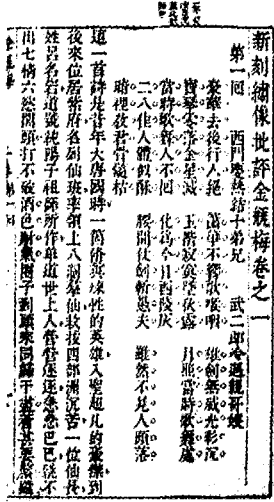 新刻繡像批評金瓶梅卷之一
第一回　西門慶熱結十弟兄　武二郎冷遇親哥嫂
豪華去後行人絕　簫箏不響歌喉咽　雄劍無威光彩沉
寶琴零落金星滅　玉階寂寞墜秋露　月照當時歌舞處
當時歌舞人不回　化為今日西陵灰
二八佳人體似酥　腰間仗劍斬愚夫　雖然不見人頭落
暗裡教君骨髓枯
這一首詩是昔年大唐國時一個修真煉性的英雄入聖超凡的豪傑到
後來位居紫府名列仙班率領上八洞羣仙救拔四部洲沉苦一位仙長
姓呂名岩道號純陽子祖師所作單道世上人營營逐逐急急巴巴跳不
出七情六慾關頭打不破酒色財氣圈子到頭來同歸于盡着甚要緊